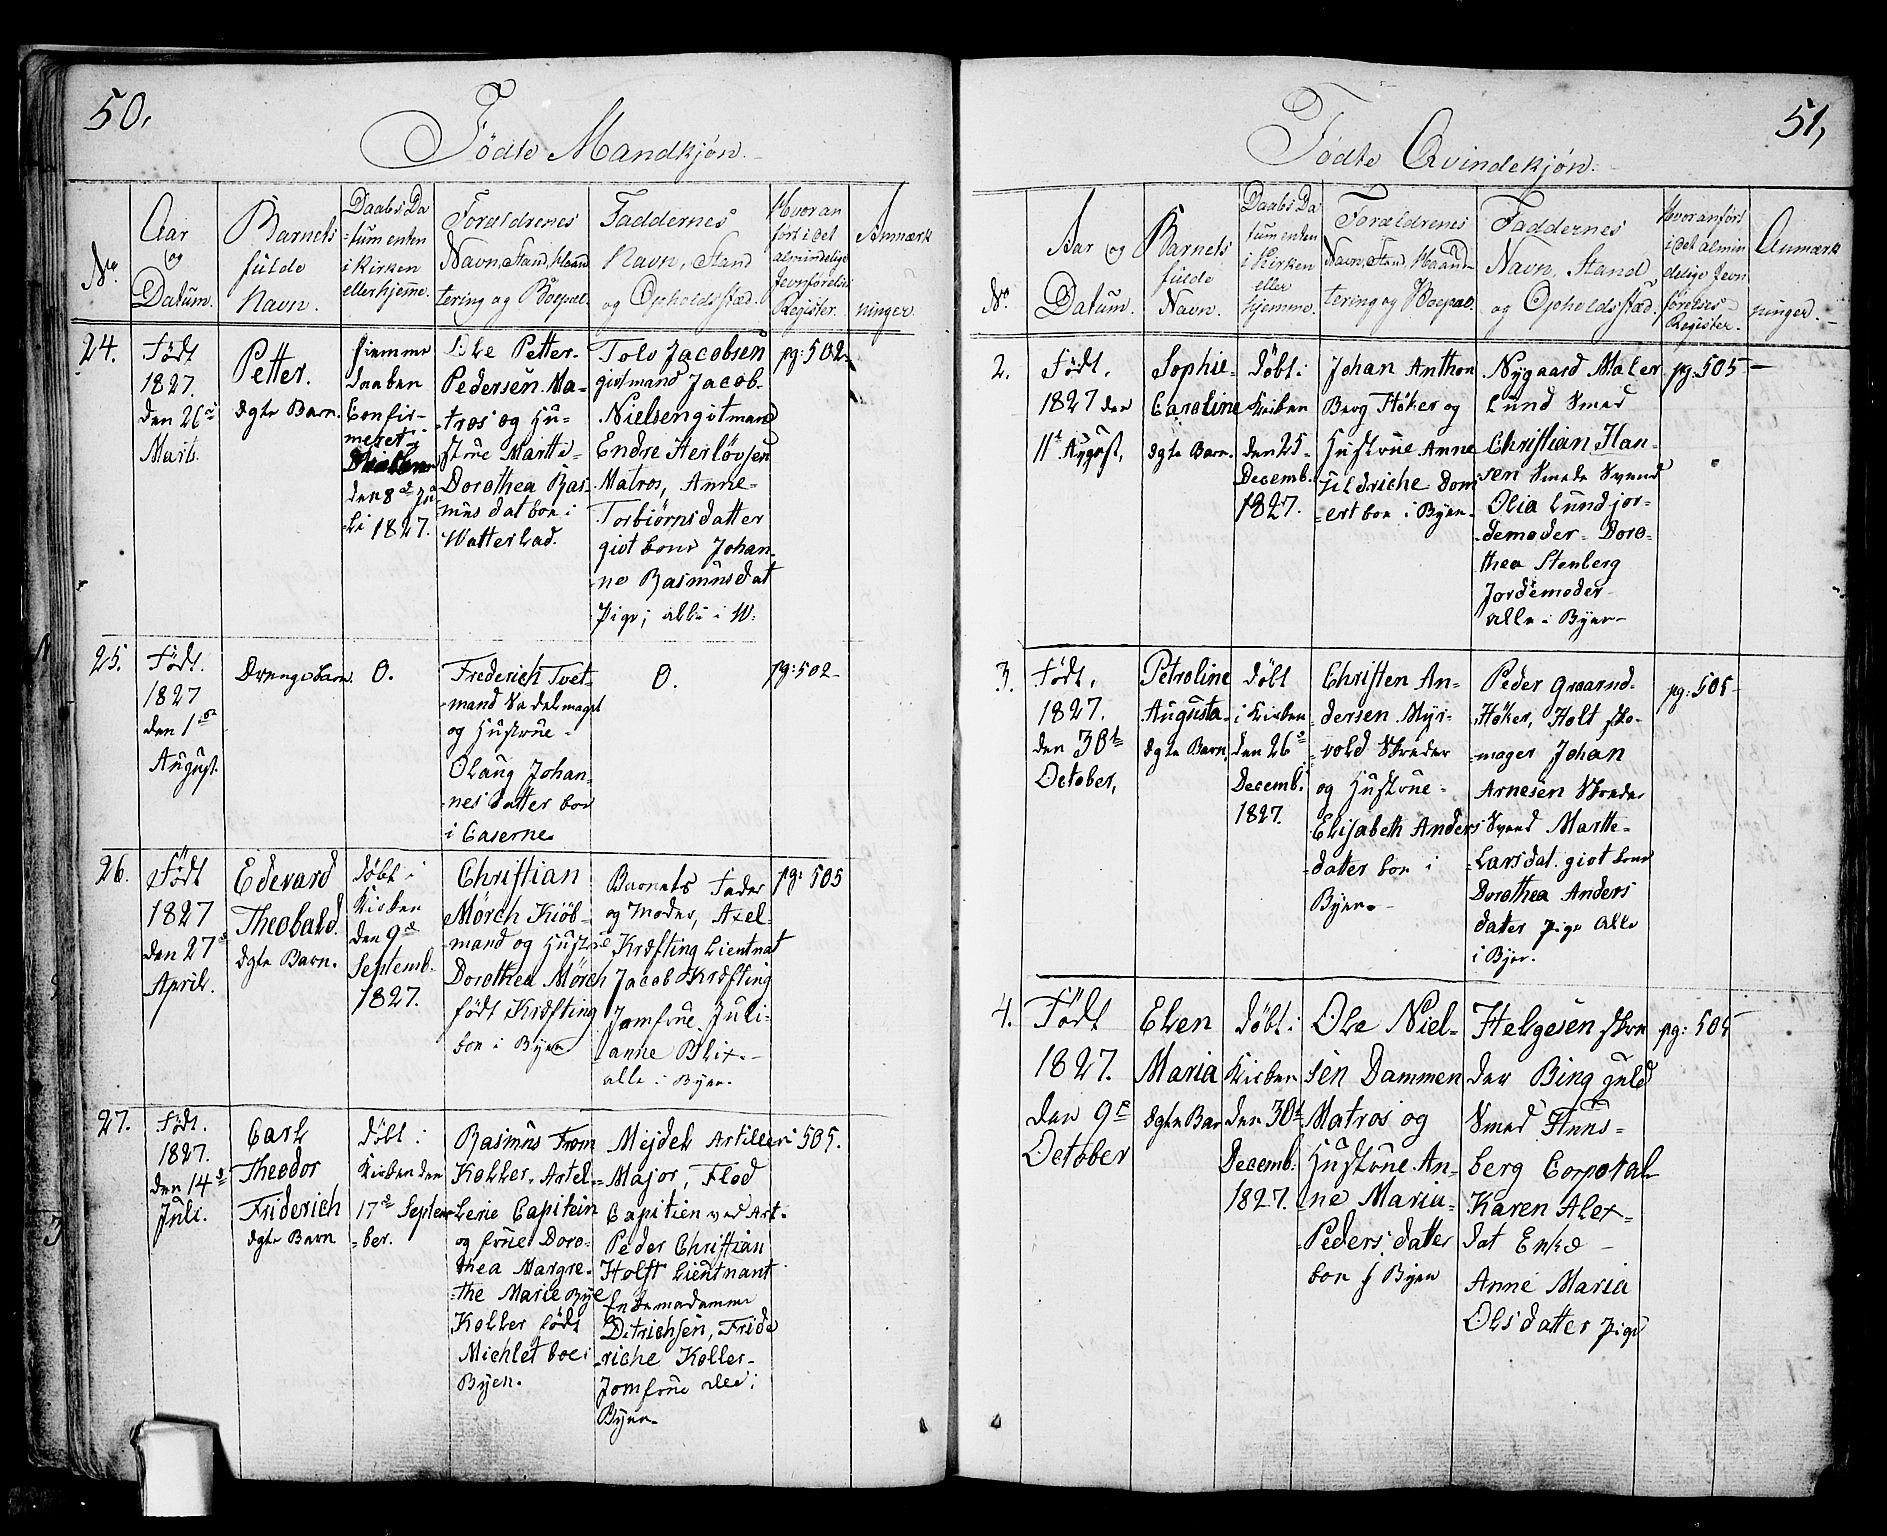 50.
Fødte Mandkjøn.
No
Aar
og
Datum.
Barnets
fulde
Navn.
Daabs Da
tum enten
i Kirken
eller hjemme.
Forældrenes
Navn, Stand, Haand
tering og Boepæl.
Faddernes
Navn, Stand
og Opholdsstæd.
Hvor an
ført i det
almindelige
Jevnførelses
Register.
Anmærk
ninger.
24.
Født
1827.
den 26de
Marts.
Petter.
ægte Barn.
hiemme
daaben
Confir-
meret
den 8de Ju
li 1827.
Ole Petter
Pedersen Ma-
tros og Hu-
strue Marthe
Dorothea Ras-
musdat boe i
Watterland.
Tolv Jacobsen
giftmand Jacob
Nielsen giftmand
Endre Herløvsen
Matros, Anne
Torbiørnsdatter
gift kone Johan-
ne Rasmusdat
Pige; alle i W.
pg: 502
25.
Født.
1827
den 1ste
August.
Drengebarn
0.
Frederich Tvet-
mand Sadelmager
og Hustrue
Olaug Johan-
nesdatter boe
i Caserne
0.
pg: 502
26.
Født
1827
den 27de
April.
Edevard
Theobald.
ægte Barn.
døbt i
Kirken
den 9de
Septemb.
1827.
Christian
Mørch Kiøb-
mand og Hustrue
Dorothea Mørch
født Kræfting
boe i Byen
Barnets Fader
og Moder, Axel
Kræfting Lieutnat
Jacob Kræfting
Jomfrue Juli-
anne Blix
alle i Byen.
pg: 505
27.
Født.
1827.
den 14de
Juli.
Carl
Theodor
Friderich
ægte Barn
døbt i
Kirken den
17de Septem
ber.
Rasmus From
Koller, Artel-
lerie Capitein
og frue Doro-
thea Margre-
the Marie Bye
Koller født
Michlet boe i
Byen.
Mejdel Artilleri
Major, Flod
Capitien ved Art.
Peder Christian
Holst Lieutnant
Enkemadamme
Ditrichsen, Fride
riche Koller
Jomfrue alle i
Byen
505.
51,
Fødte Qvindekjøn.
No
Aar og
Datum.
Barnets
fulde
Navn.
Daabs Da
tum enten
i Kirken
eller
hjemme.
Forældrenes
Navn, Stand Haand
tering og Boepæl.
Faddernes
Navn, Stand
og Opholdsstæd.
Hvor anført
i det almin
delige Jevn
førelses
Register.
Anmærk
ninger.
2.
Født,
1827 den
11te August,
Sophie
Caroline
ægte Barn.
døbt i
Kirken
den 25
Decemb.
1827.
Johan Anthon
Berg Høker og
Hustrue Anne
Uldriche Dom
ert boe i Byen
Nygaard Maler
Lund Smed
Christian Han-
sen Smede Svend
Olia Lund jor-
demoder Doro-
thea Stenberg
Jordemoder
alle i Byen
pg. 505
3.
Født,
1827.
den 30te
October,
Petroline
Augusta
ægte Barn.
døbt
i Kirken
den 26de
Decemb.
1827.
Christen An-
dersen Myr-
vold Skreder
og Hustrue
Elisabeth Anders
datter boe i
Byen
Peder Graarud
Høker, Holt sko-
mager Johan
Arnesen Skreder
Svend Marthe
Larsdat. gift kone
Dorothea Anders
datter Pige Alle
i Byen.
pg: 505
4.
Født
1827.
den 9de
October
Elen
Maria
ægte Barn
døbt i
Kirken
den 30te
Decemb.
1827.
Ole Niel-
sen Dammen
Matros og
Hustrue An-
ne Maria
Pedersdatter
boe i Byen
Helgesen skre
der Bing guld
Smed Huns-
berg Corporal
Karen Alex-
dat Enke
Anne Maria
Olsdatter pige
pg: 505